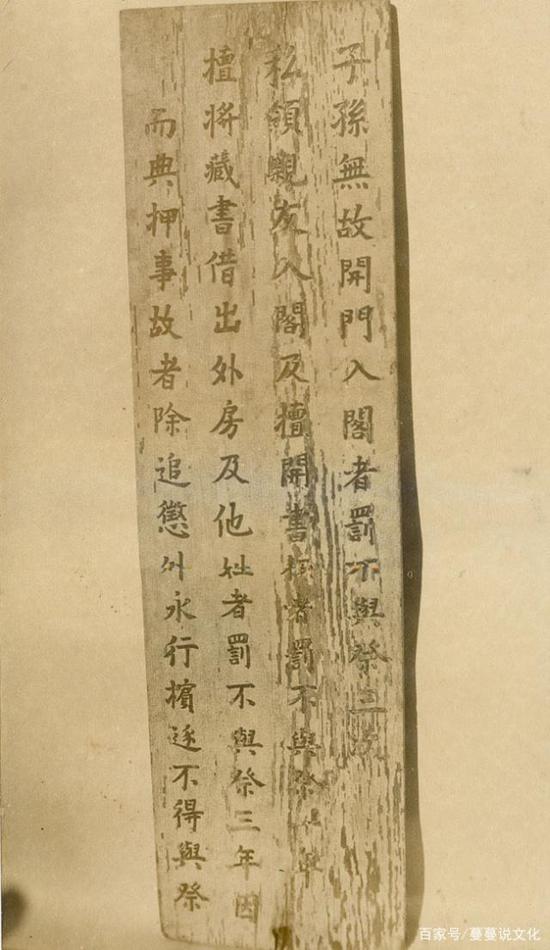 子孫無故開門入閣者罰不與祭三次
私領親友入閣及擅開書橱者罰不與祭一年
擅將藏書借出外房及他姓者罰不與祭三年因
而典押事故者除追懲外永行擯逐不得與祭
百家号/蔓蔓说文化